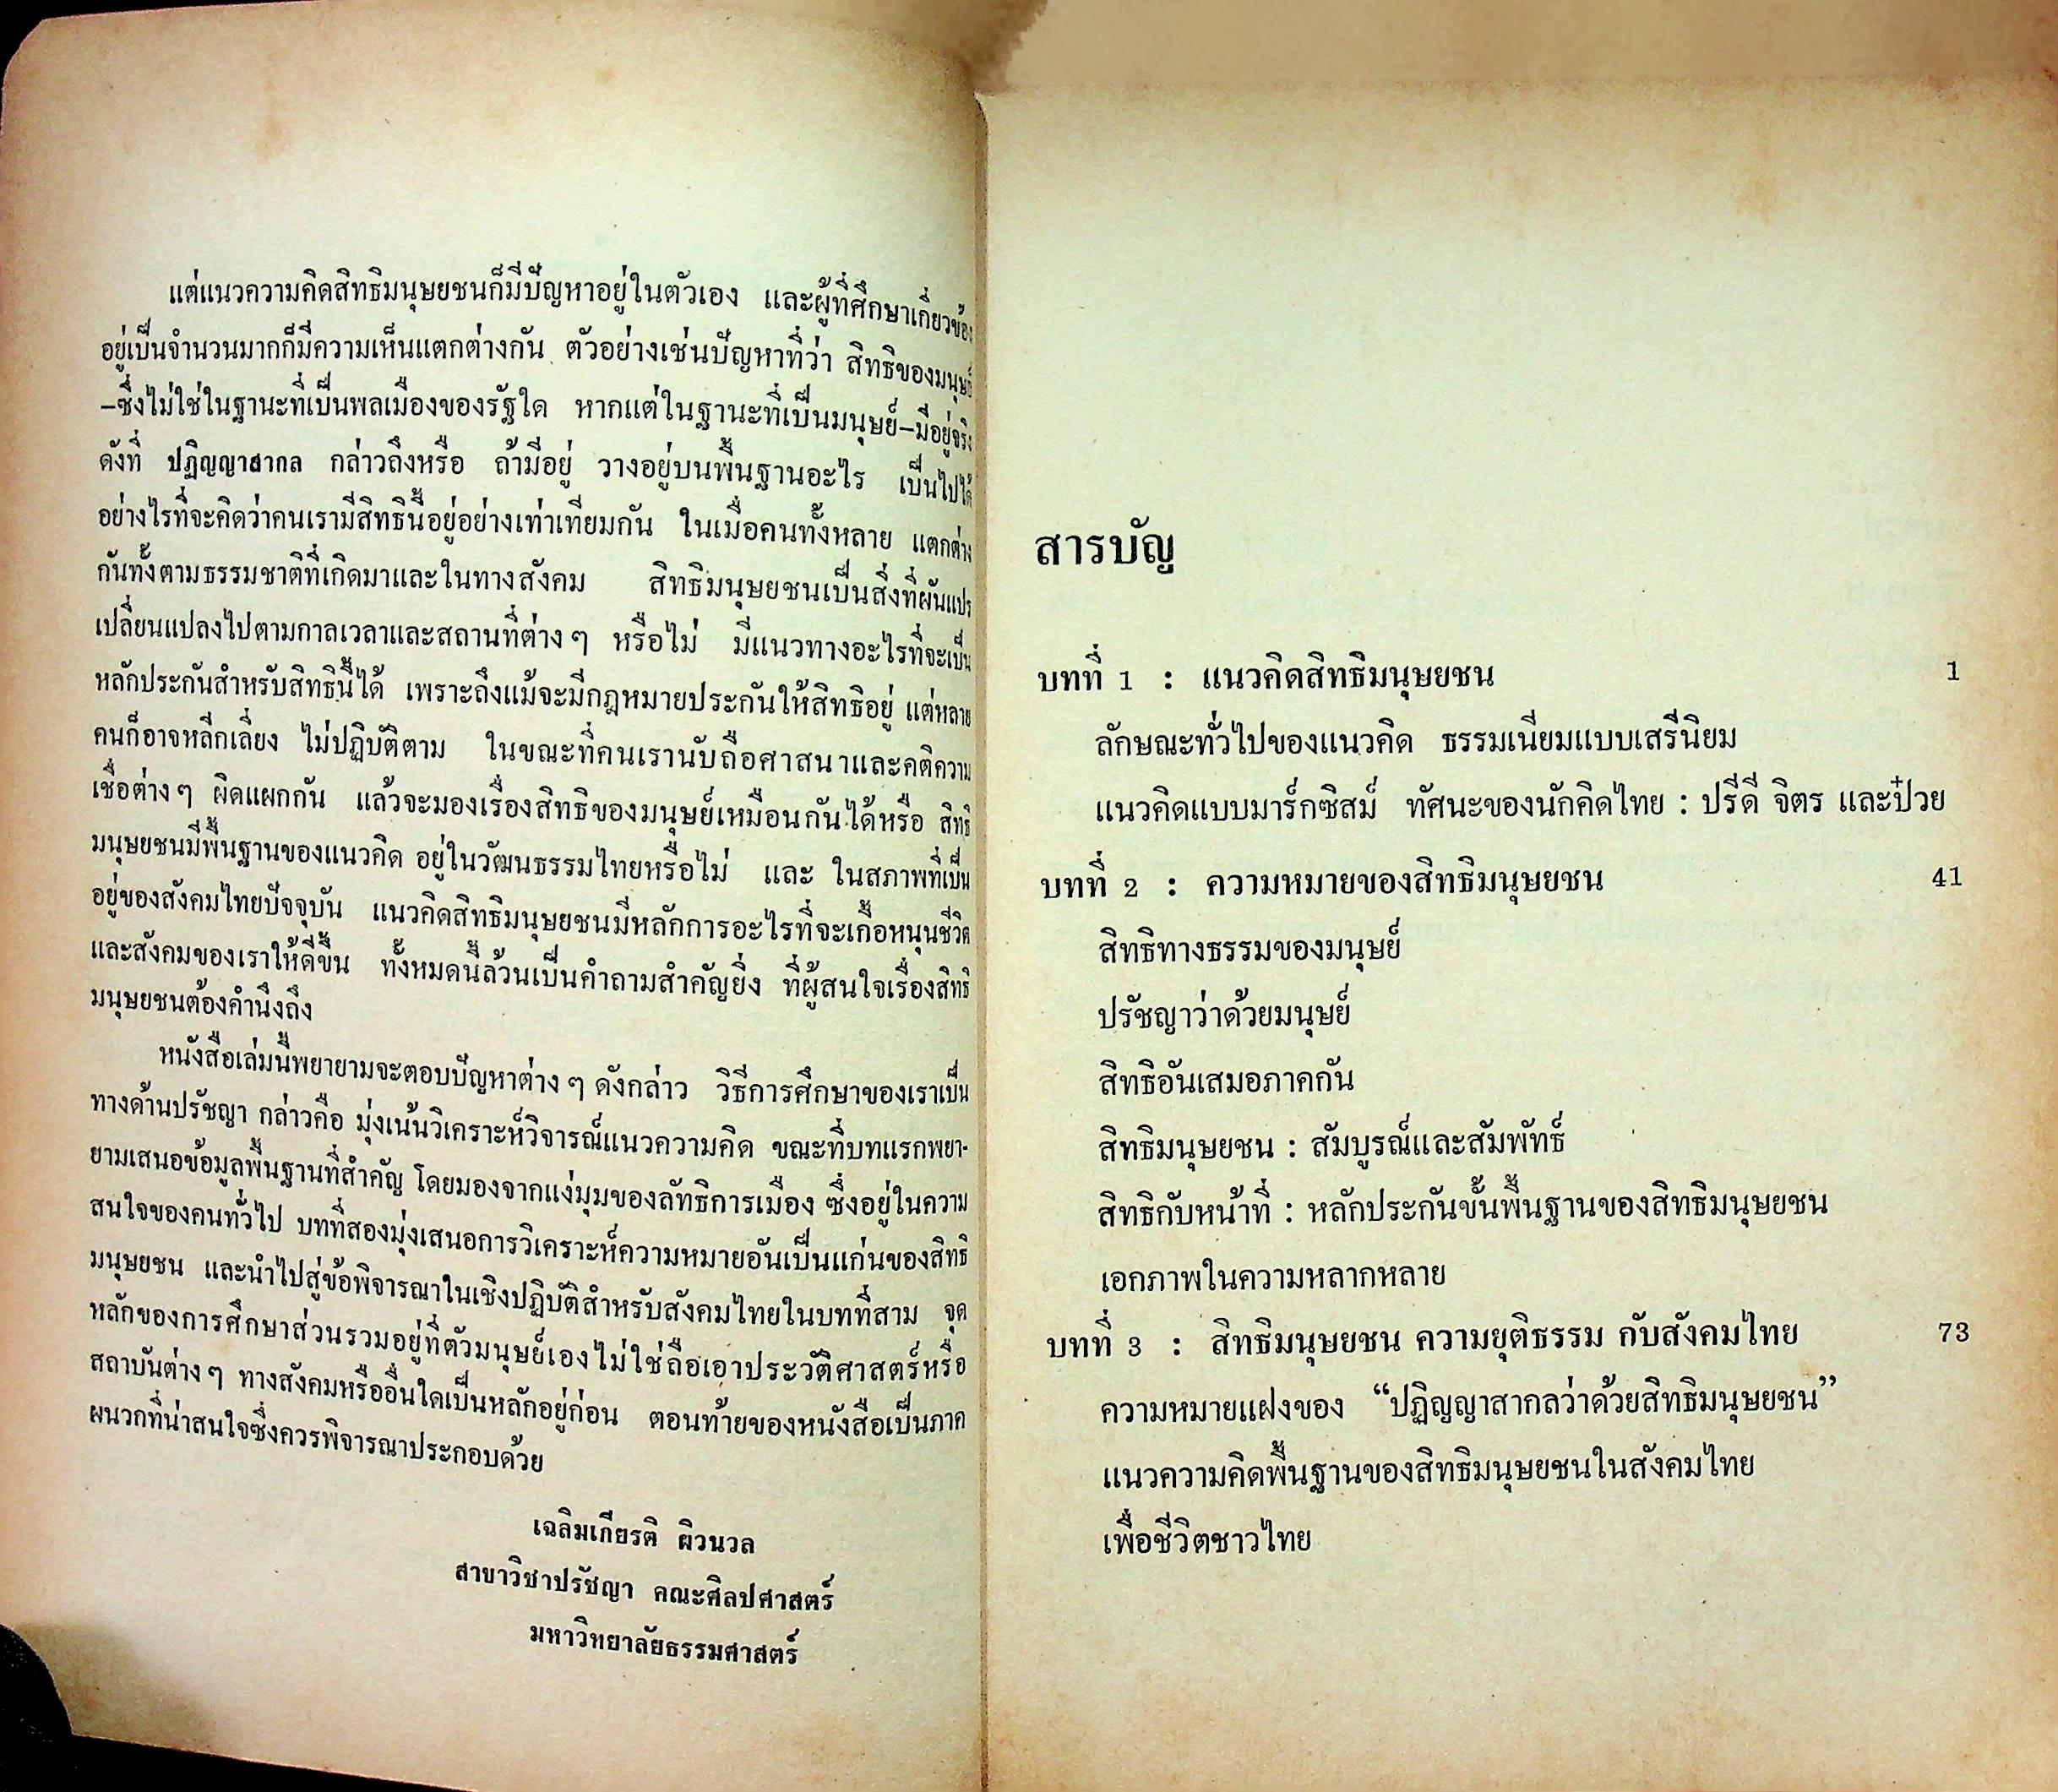 แต่แนวความคิดสิทธิมนุษยชนก็มีปัญหาอยู่ในตัวเอง และผู้ที่ศึกษาเกี่ยวข้อง
อยู่เป็นจำนวนมากก็มีความเห็นแตกต่างกัน ตัวอย่างเช่นปัญหาที่ว่า สิทธิของมนุษย์
–ซึ่งไม่ใช่ในฐานะที่เป็นพลเมืองของรัฐใด หากแต่ในฐานะที่เป็นมนุษย์–มีอยู่จริง
ดังที่ ปฏิญญาสากล กล่าวถึงหรือ ถ้ามีอยู่ วางอยู่บนพื้นฐานอะไร เป็นไปได้
อย่างไรที่จะคิดว่าคนเรามีสิทธินี้อยู่อย่างเท่าเทียมกัน ในเมื่อคนทั้งหลาย แตกต่าง
กันทั้งตามธรรมชาติที่เกิดมาและในทางสังคม สิทธิมนุษยชนเป็นสิ่งที่ผันแปร
เปลี่ยนแปลงไปตามกาลเวลาและสถานที่ต่าง ๆ หรือไม่ มีแนวทางอะไรที่จะเป็น
หลักประกันสำหรับสิทธินี้ได้ เพราะถึงแม้จะมีกฎหมายประกันให้สิทธิอยู่ แต่หลาย
คนก็อาจหลีกเลี่ยง ไม่ปฏิบัติตาม ในขณะที่คนเรานับถือศาสนาและคติความ
เชื่อต่าง ๆ ผิดแผกกัน แล้วจะมองเรื่องสิทธิของมนุษย์เหมือนกันได้หรือ สิทธิ
มนุษยชนมีพื้นฐานของแนวคิด อยู่ในวัฒนธรรมไทยหรือไม่ และ ในสภาพที่เป็น
อยู่ของสังคมไทยปัจจุบัน แนวคิดสิทธิมนุษยชนมีหลักการอะไรที่จะเกื้อหนุนชีวิต
และสังคมของเราให้ดีขึ้น ทั้งหมดนี้ล้วนเป็นคำถามสำคัญยิ่ง ที่ผู้สนใจเรื่องสิทธิ
มนุษยชนต้องคำนึงถึง
หนังสือเล่มนี้พยายามจะตอบปัญหาต่าง ๆ ดังกล่าว วิธีการศึกษาของเราเป็น
ทางด้านปรัชญา กล่าวคือ มุ่งเน้นวิเคราะห์วิจารณ์แนวความคิด ขณะที่บทแรกพยา-
ยามเสนอข้อมูลพื้นฐานที่สำคัญ โดยมองจากแง่มุมของลัทธิการเมือง ซึ่งอยู่ในความ
สนใจของคนทั่วไป บทที่สองมุ่งเสนอการวิเคราะห์ความหมายอันเป็นแก่นของสิทธิ
มนุษยชน และนำไปสู่ข้อพิจารณาในเชิงปฏิบัติสำหรับสังคมไทยในบทที่สาม จุด
หลักของการศึกษาส่วนรวมอยู่ที่ตัวมนุษย์เอง ไม่ใช่ถือเอาประวัติศาสตร์หรือ
สถาบันต่าง ๆ ทางสังคมหรืออื่นใดเป็นหลักอยู่ก่อน ตอนท้ายของหนังสือเป็นภาค
ผนวกที่น่าสนใจซึ่งควรพิจารณาประกอบด้วย
เฉลิมเกียรติ ผิวนวล
สาขาวิชาปรัชญา คณะศิลปศาสตร์
มหาวิทยาลัยธรรมศาสตร์
สารบัญ
บทที่ 1 : แนวคิดสิทธิมนุษยชน 1
ลักษณะทั่วไปของแนวคิด ธรรมเนียมแบบเสรีนิยม
แนวคิดแบบมาร์กซิสม์ ทัศนะของนักคิดไทย : ปรีดี จิตร และป๋วย
บทที่ 2 : ความหมายของสิทธิมนุษยชน 41
สิทธิทางธรรมของมนุษย์
ปรัชญาว่าด้วยมนุษย์
สิทธิอันเสมอภาคกัน
สิทธิมนุษยชน : สัมบูรณ์และสัมพัทธ์
สิทธิกับหน้าที่ : หลักประกันขั้นพื้นฐานของสิทธิมนุษยชน
เอกภาพในความหลากหลาย
บทที่ 3 : สิทธิมนุษยชน ความยุติธรรม กับสังคมไทย 73
ความหมายแฝงของ “ปฏิญญาสากลว่าด้วยสิทธิมนุษยชน”
แนวความคิดพื้นฐานของสิทธิมนุษยชนในสังคมไทย
เพื่อชีวิตชาวไทย